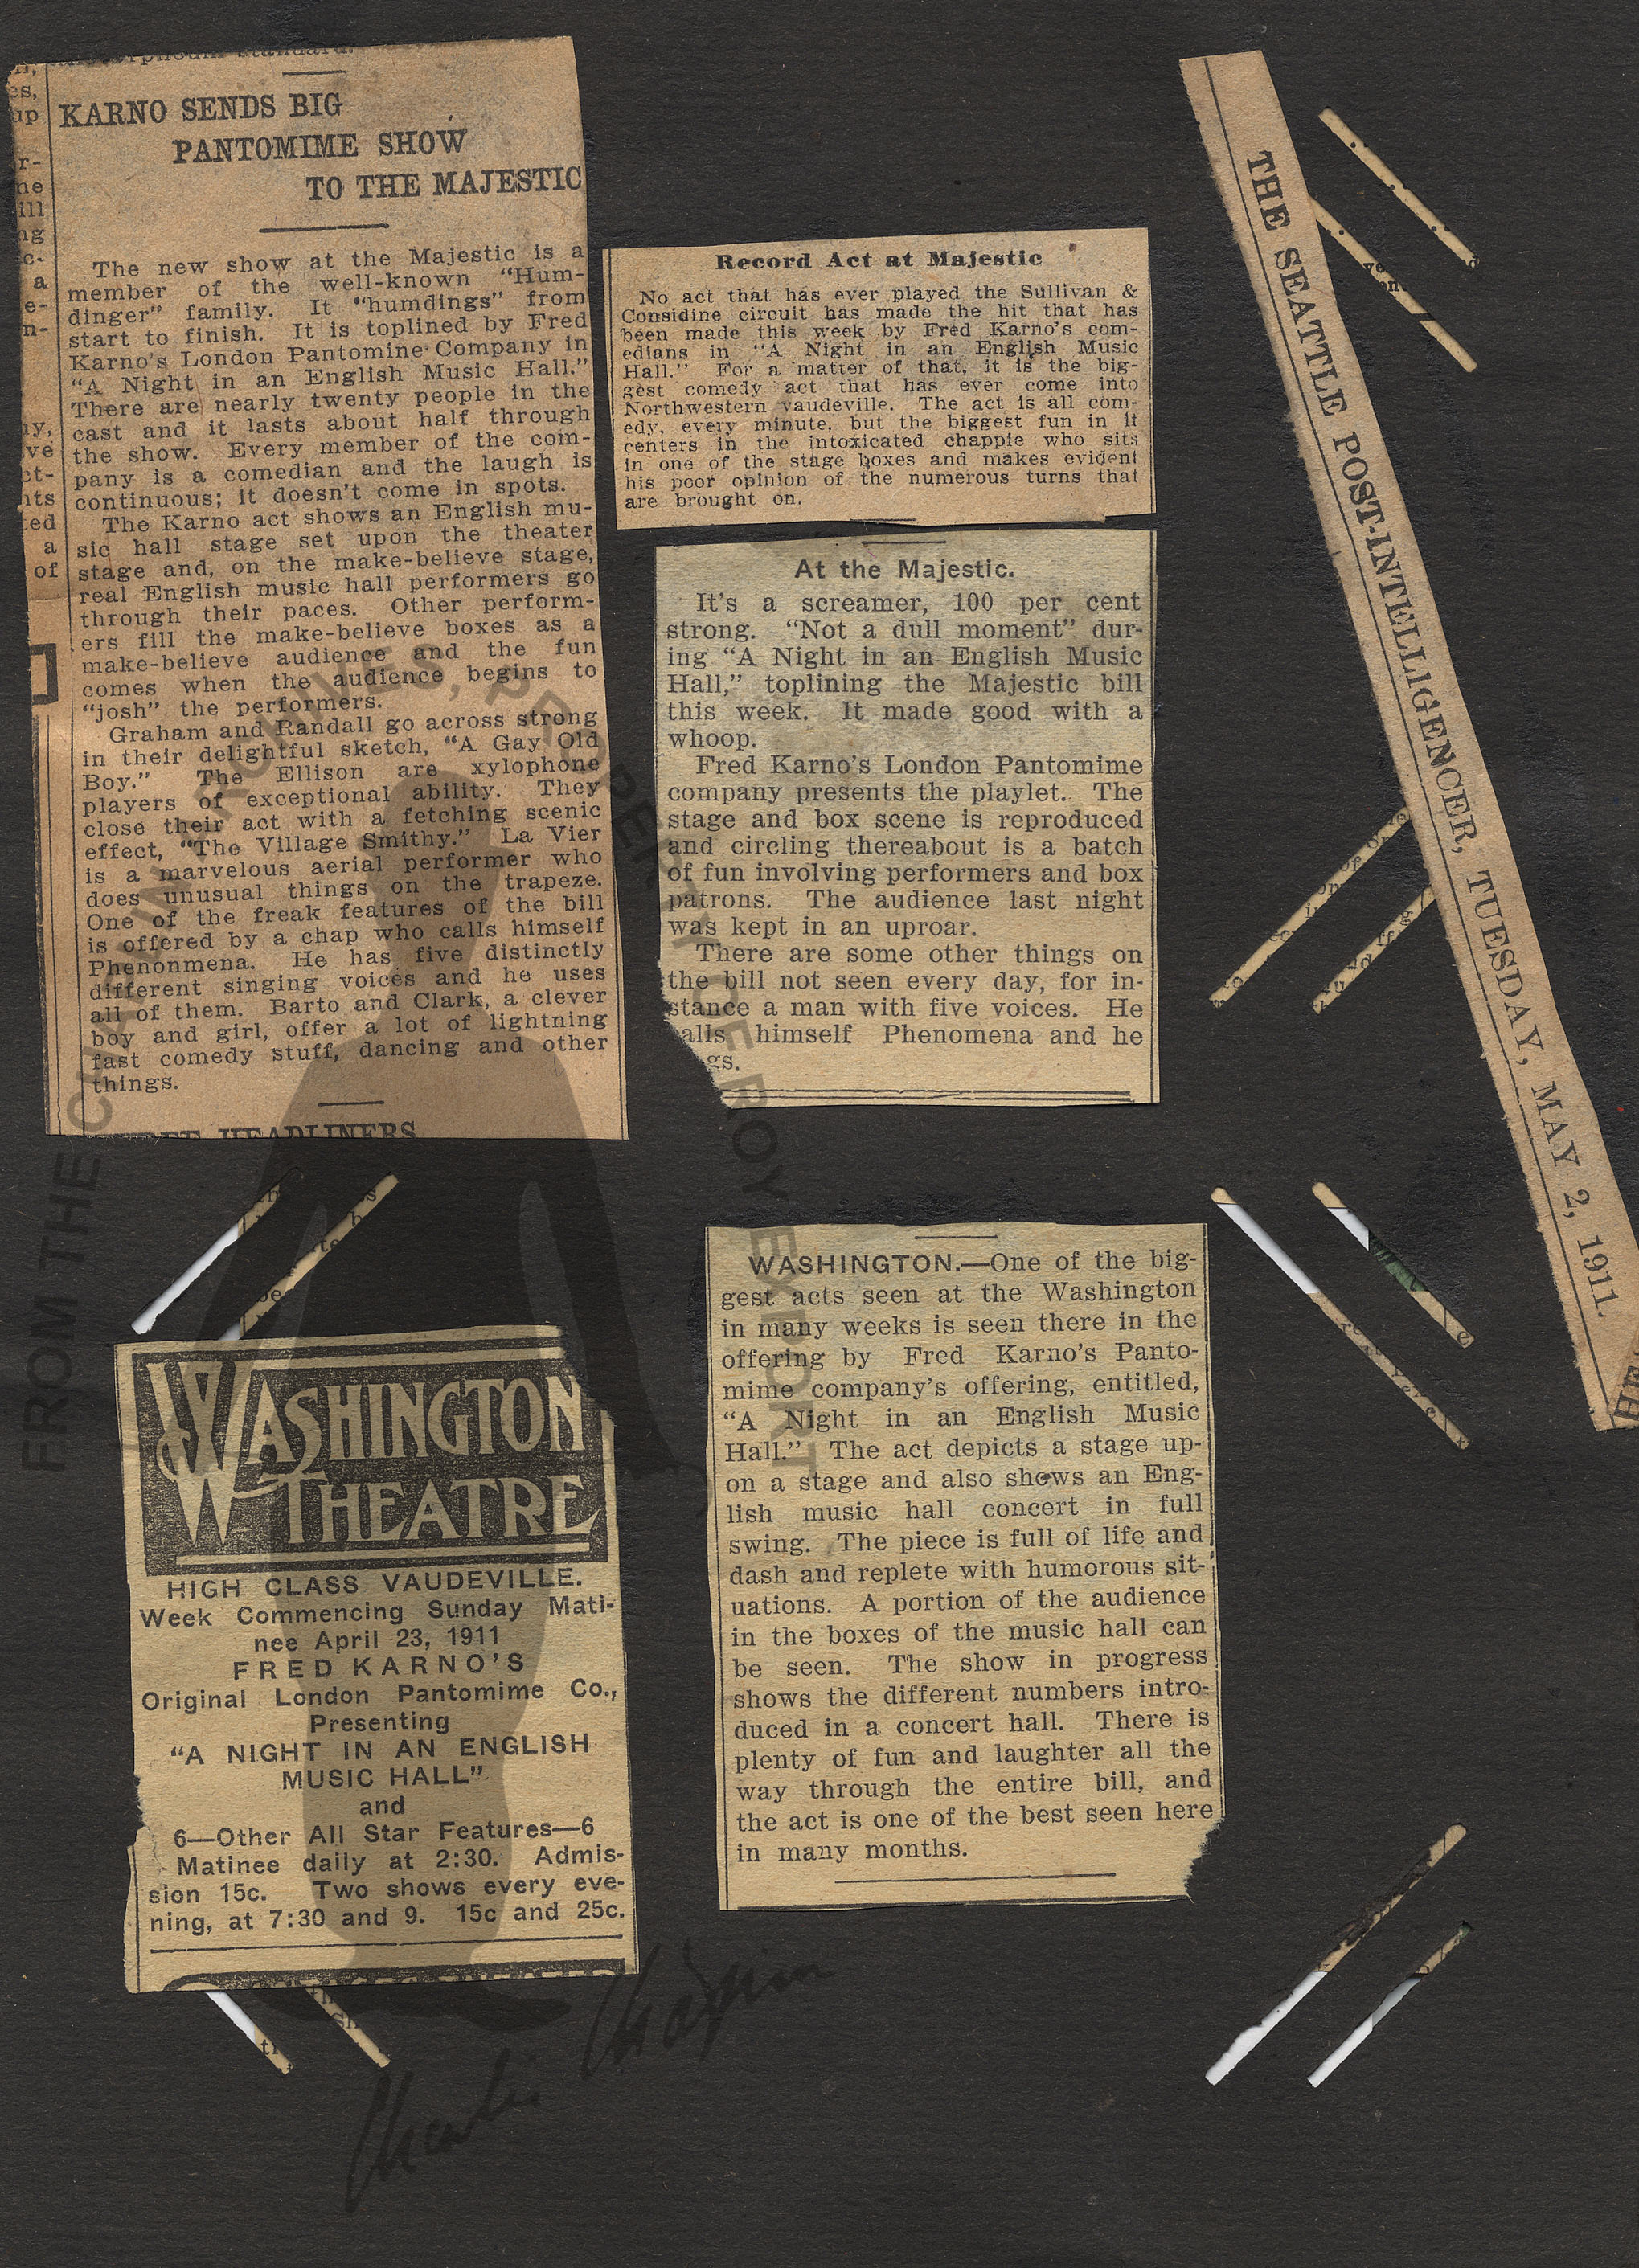 KARNO SENDS BIG
PANTOMIME SHOW
TO THE MAJESTIC
The new show at the Majestic is a
member of the well-known "Hum-
dinger" family. It "humdings" from
start to finish. It is toplined by Fred
Karno's London Pantomine Company in
"A Night in an English Music Hall."
There are nearly twenty people in the
cast and it lasts about half through
the show. Every member of the com-
pany is a comedian and the laugh is
continuous; it doesn't come in spots.
The Karno act shows an English mu-
sic hall stage set upon the theater
stage and, on the make-believe stage,
real English music hall performers go
through their paces. Other perform-
ers fill the make-believe boxes as a
make-believe audience and the fun
comes when the audience begins to
"josh" the performers.
Graham and Randall go across strong
in their delightful sketch, "A Gay Old
Boy." The Ellison are xylophone
players of exceptional ability. They
close their act with a fetching scenic
effect, "The Village Smithy." La Vier
is a marvelous aerial performer who
does unusual things on the trapeze.
One of the freak features of the bill
is offered by a chap who calls himself
Phenonmena. He has five distinctly
different singing voices and he uses
all of them. Barto and Clark, a clever
boy and girl, offer a lot of lightning
fast comedy stuff, dancing and other
things.
HEADLINERS
Record Act at Majestic
No act that has ever played the Sullivan &
Considine circuit has made the hit that has
been made this week by Fred Karno's com-
edians in "A Night in an English Music
Hall." For a matter of that, it is the big-
gest comedy act that has ever come into
Northwestern vaudeville. The act is all com-
edy, every minute, but the biggest fun in it
centers in the intoxicated chappie who sits
in one of the stage boxes and makes evident
his poor opinion of the numerous turns that
are brought on.
At the Majestic.
It's a screamer, 100 per cent
strong. "Not a dull moment" dur-
ing "A Night in an English Music
Hall," toplining the Majestic bill
this week. It made good with a
whoop.
Fred Karno's London Pantomime
company presents the playlet. The
stage and box scene is reproduced
and circling thereabout is a batch
of fun involving performers and box
patrons. The audience last night
was kept in an uproar.
There are some other things on
the bill not seen every day, for in-
stance a man with five voices. He
alls himself Phenomena and he
gs.
THE SEATTLE POST-INTELLIGENCER, TUESDAY, MAY 2, 1911.
WASHINGTON THEATRE
HIGH CLASS VAUDEVILLE.
Week Commencing Sunday Mati-
nee April 23, 1911
FRED KARNO'S
Original London Pantomime Co.,
Presenting
"A NIGHT IN AN ENGLISH
MUSIC HALL"
and
6—Other All Star Features—6
Matinee daily at 2:30. Admis-
sion 15c. Two shows every eve-
ning, at 7:30 and 9. 15c and 25c.
WASHINGTON.—One of the big-
gest acts seen at the Washington
in many weeks is seen there in the
offering by Fred Karno's Panto-
mime company's offering, entitled,
"A Night in an English Music
Hall." The act depicts a stage up-
on a stage and also shows an Eng-
lish music hall concert in full
swing. The piece is full of life and
dash and replete with humorous sit-
uations. A portion of the audience
in the boxes of the music hall can
be seen. The show in progress
shows the different numbers intro-
duced in a concert hall. There is
plenty of fun and laughter all the
way through the entire bill, and
the act is one of the best seen here
in many months.
FROM THE CHAPLIN ARCHIVES, PROPERTY OF ROY EXPORT
Charlie Chaplin